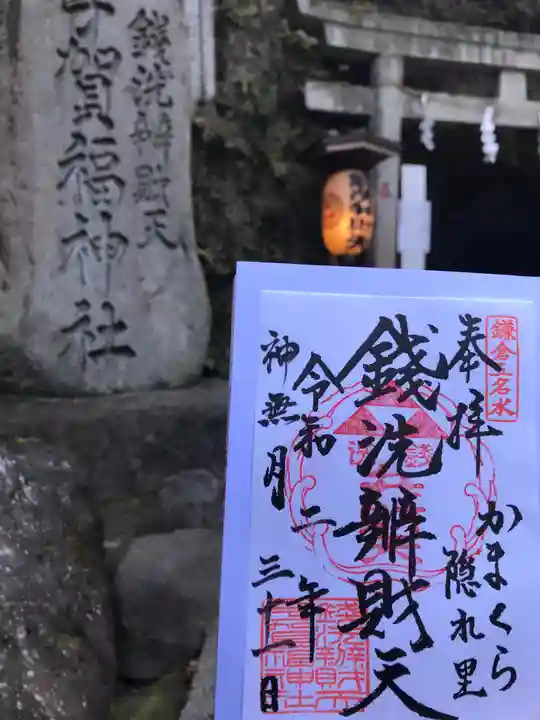 銭洗辨財天
宇賀福神社
鎌倉五名水
奉拝
かまくら
隠れ里
銭洗辦財天
令和二年
神無月三十一日